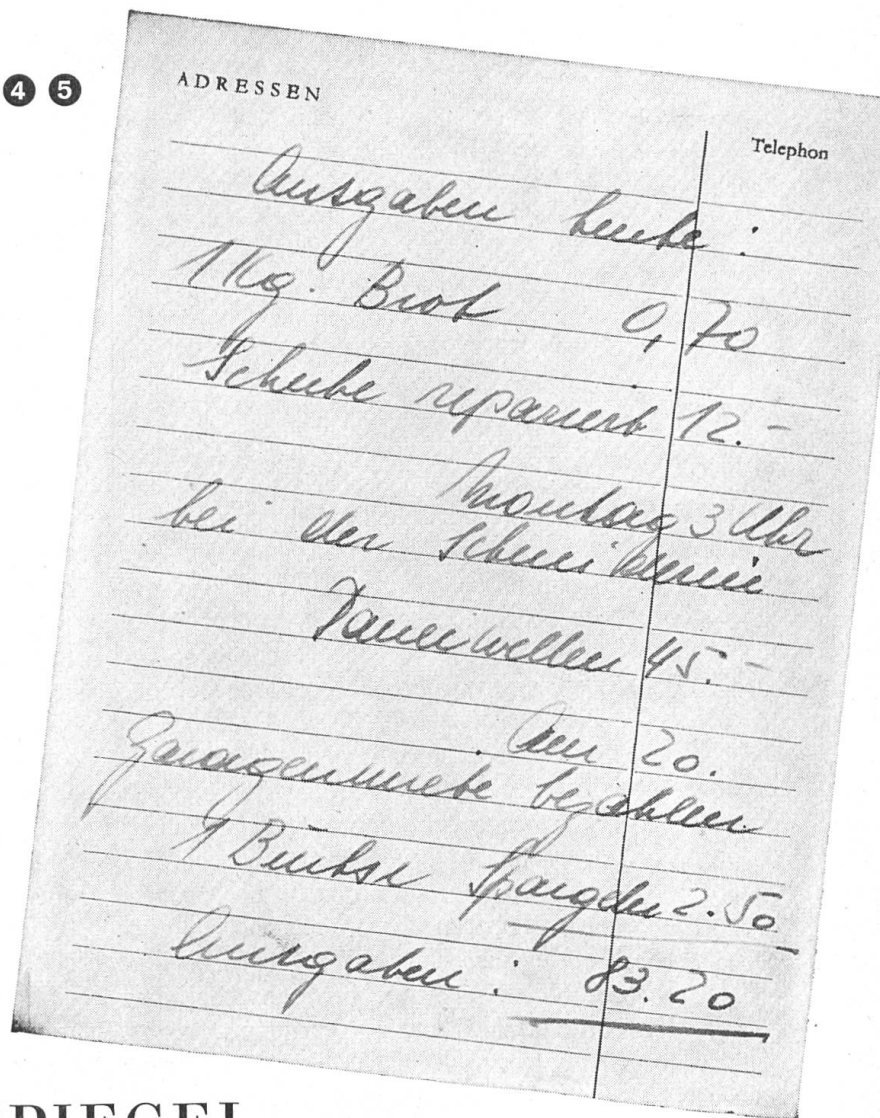 4 5
ADRESSEN
Telephon
Ausgaben heute :
1 Kg. Brot 0,70
Scheibe repariert 12.-
Montag 3 Uhr
bei der Schneiderin
Dauerwellen 45.-
Am 20.
Garagenmiete bezahlen
1 Büchse Spargeln 2.50
Ausgaben : 83.20